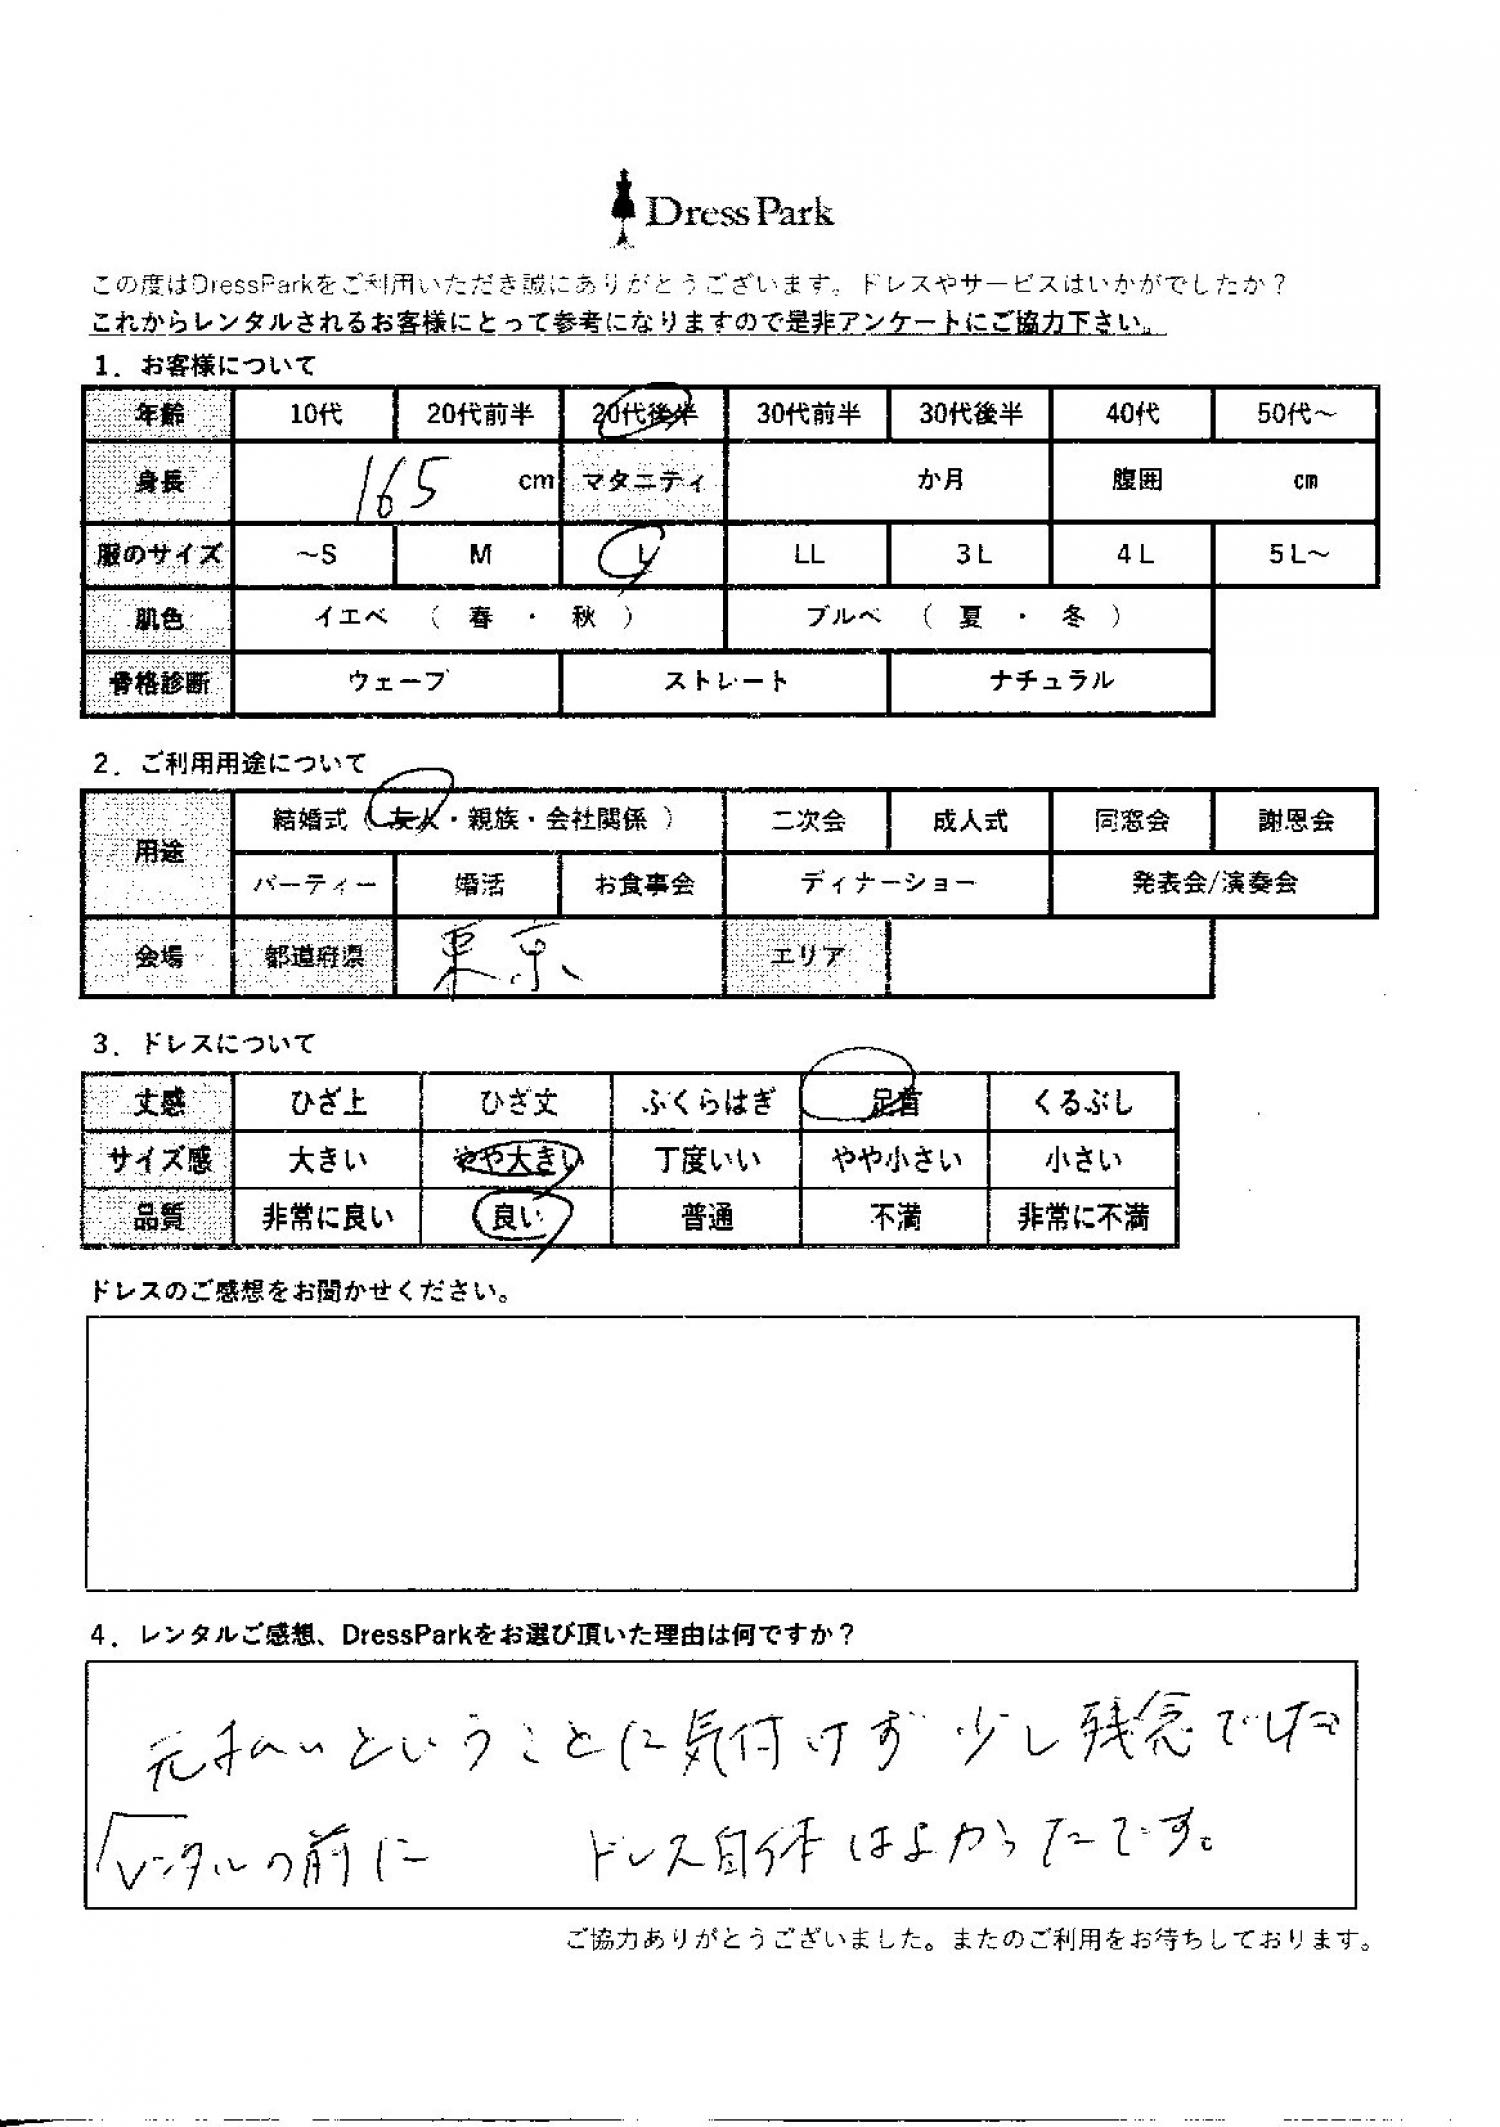 Dress Park
この度はDressParkをご利用いただき誠にありがとうございます。ドレスやサービスはいかがでしたか？
これからレンタルされるお客様にとって参考になりますので是非アンケートにご協力下さい。
1．お客様について
年齢 10代 20代前半 20代後半 30代前半 30代後半 40代 50代～
身長 165 cm マタニティ か月 腹囲 cm
服のサイズ ～S M L LL 3L 4L 5L～
肌色 イエベ （ 春 ・ 秋 ） ブルベ （ 夏 ・ 冬 ）
骨格診断 ウェーブ ストレート ナチュラル
2．ご利用用途について
用途 結婚式（ 友人・親族・会社関係 ） 二次会 成人式 同窓会 謝恩会
パーティー 婚活 お食事会 ディナーショー 発表会/演奏会
会場 都道府県 東京 エリア
3．ドレスについて
丈感 ひざ上 ひざ丈 ふくらはぎ 足首 くるぶし
サイズ感 大きい やや大きい 丁度いい やや小さい 小さい
品質 非常に良い 良い 普通 不満 非常に不満
ドレスのご感想をお聞かせください。
4．レンタルご感想、DressParkをお選び頂いた理由は何ですか？
元払いということに気付けず少し残念でした
レンタルの前に ドレス自体はよかったです。
ご協力ありがとうございました。またのご利用をお待ちしております。